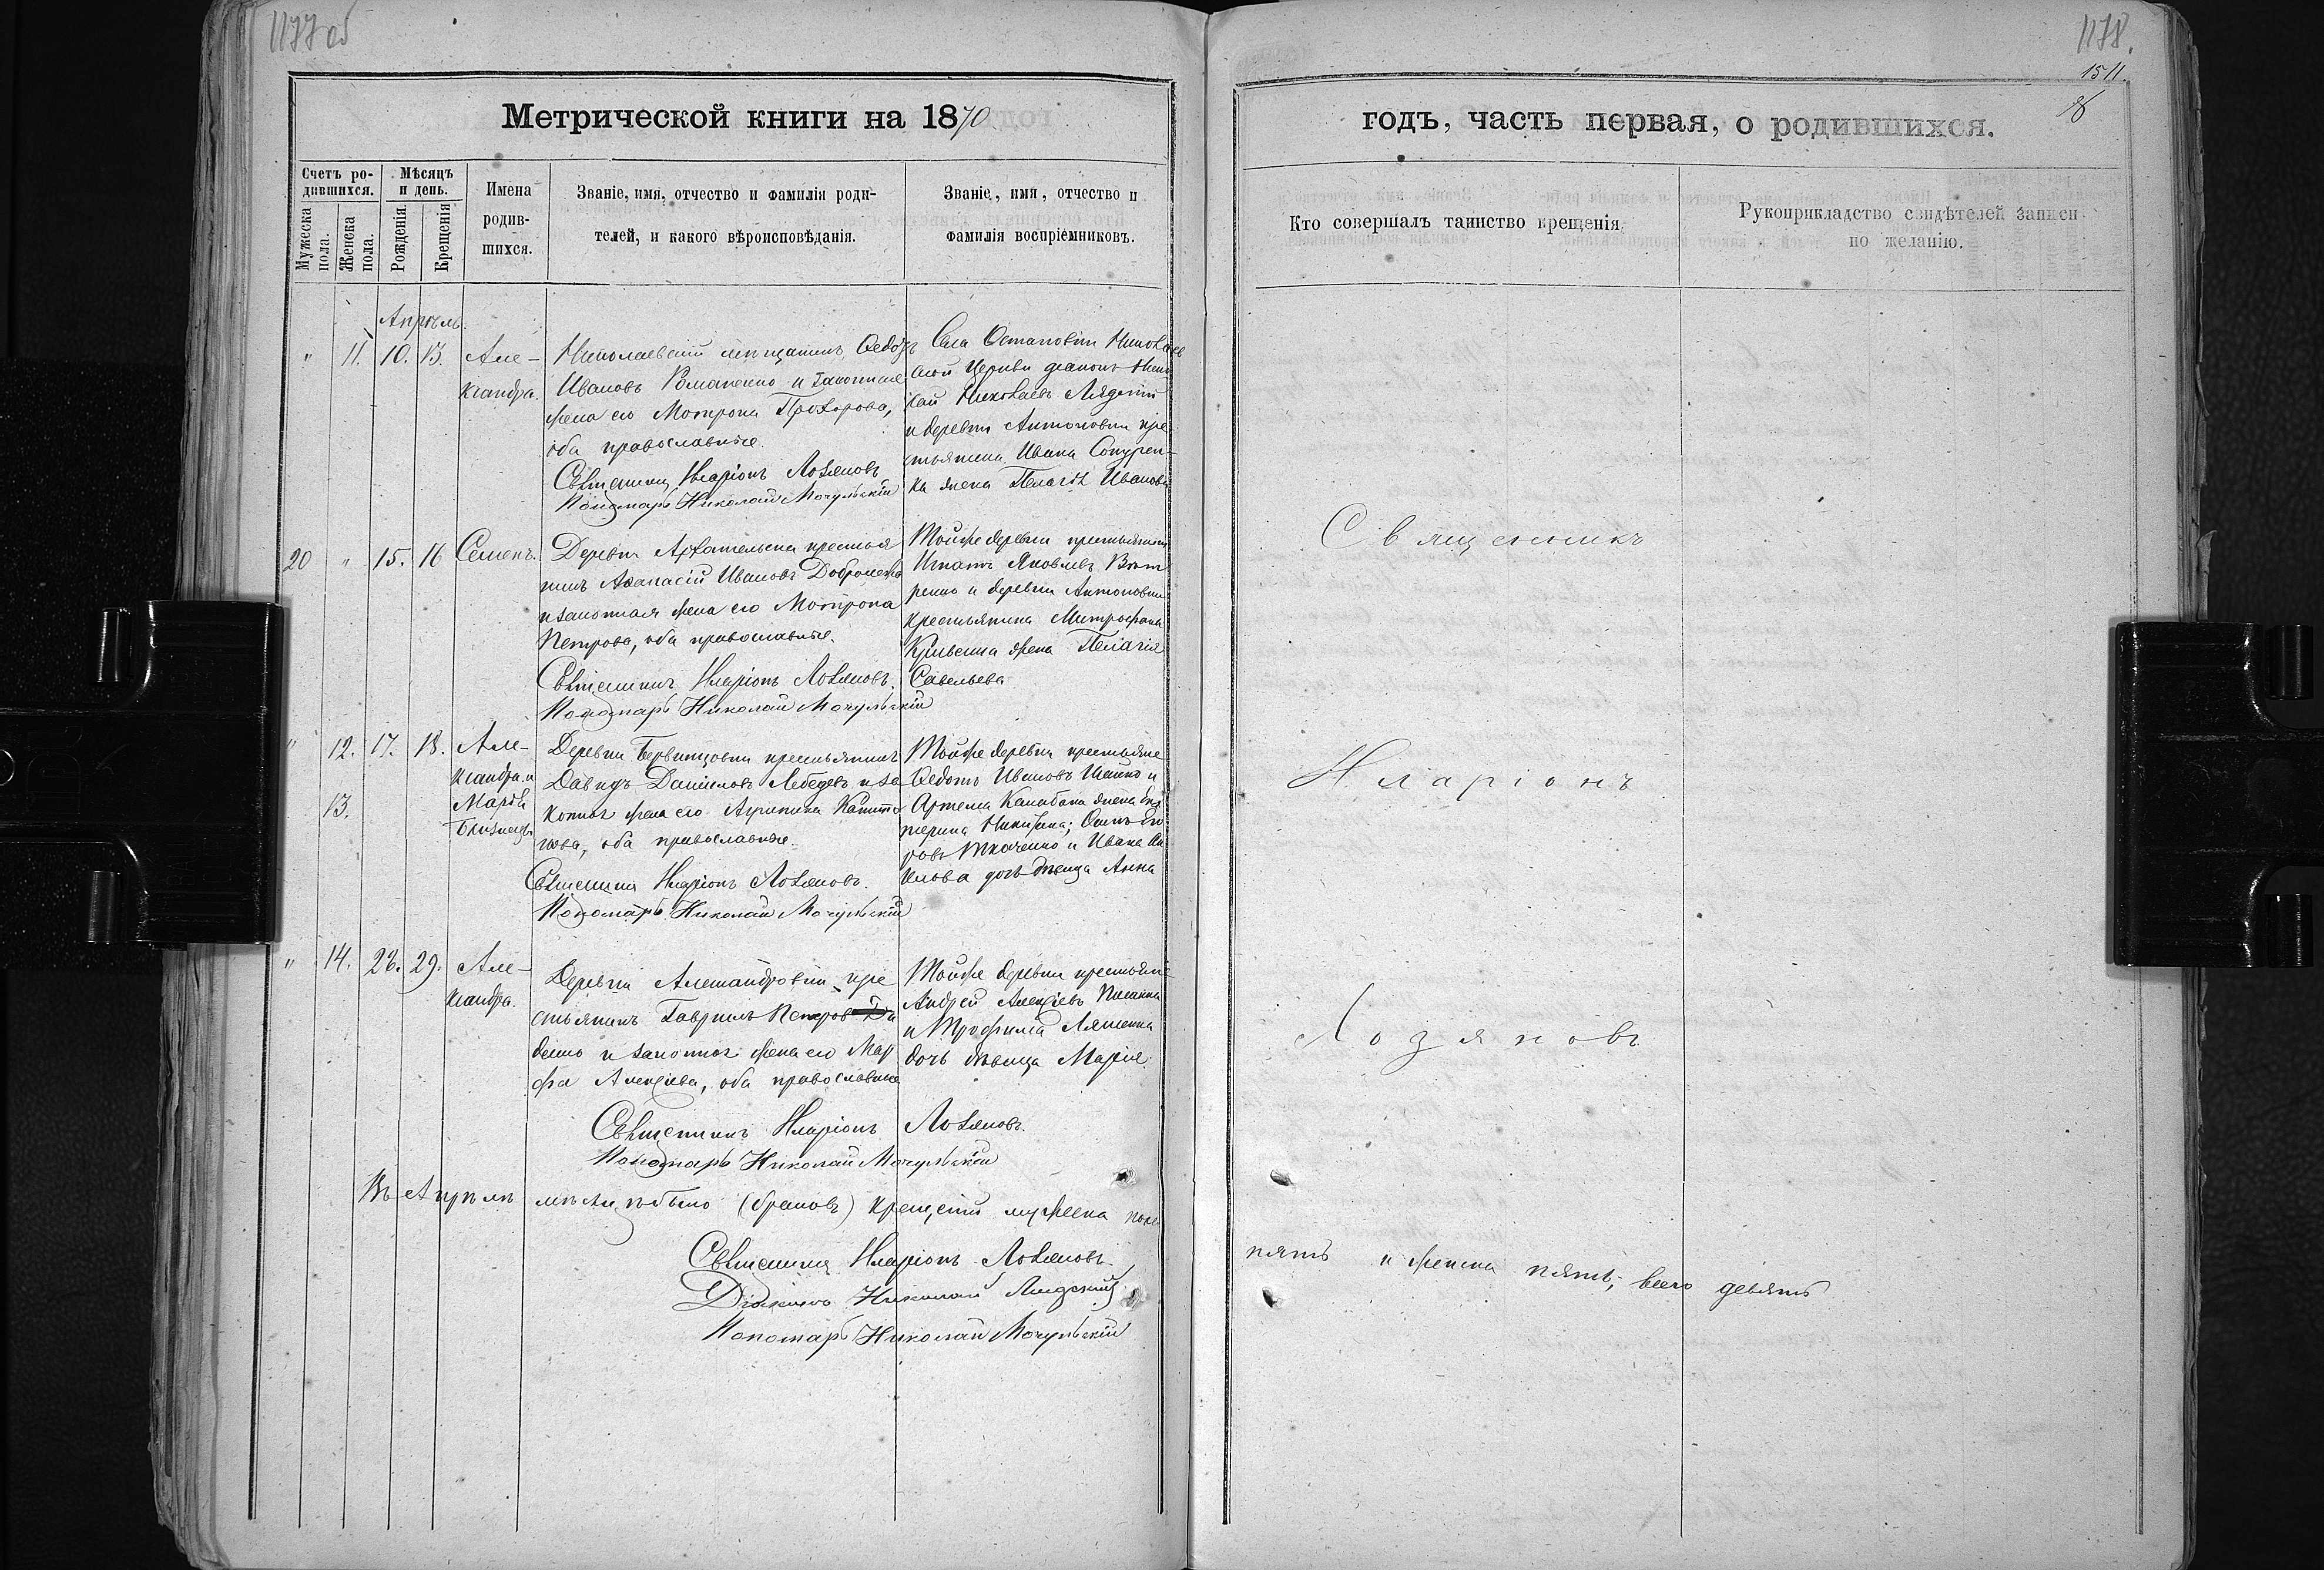 1177 об
Метрической книги на 1870
Счетъ ро-
дившихся.
Мѣсяцъ
и день.
Мужеска
пола.
Женска
пола.
Рожденія.
Крещенія
Имена
родив-
шихся.
Званіе, имя, отчество и фамилія роди-
телей, и какого вѣроисповѣданія.
Званіе, имя, отчество и
фамилія воспріемниковъ.
Апрѣль.
" 11. 10. 13. Але-
ксандра.
Николаевскій мѣщанинъ Ѳедотъ
Ивановъ Романенко и законная
жена его Мотрона Прохорова,
оба православные.
Священникъ Иларіонъ Лозяновъ
Пономарь Николай Мочульскій
Села Остаповки Николаев
ской Церкви діаконъ Нико
лай Николаевъ Лядскій
и деревни Антоновки кре
стьянина Ивана
ка жена Пелагія Иванова
20 " 15. 16 Семенъ.
Деревни Архангельска крестья
нинъ Аѳанасій Ивановъ
и законная жена его Мотрона
Петрова, оба православные.
Священникъ Иларіонъ Лозяновъ.
Пономарь Николай Мочульскій
Тойже деревни крестьянинъ
Игнатъ Яковлевъ Вѣт
ренко и деревни Антоновки
крестьянина Митрофана
жена Пелагія
Савельева
" 12. 17. 18. Але-
ксандра и
13. Марія
близнецы
Деревни крестьянинъ
Давидъ Даниловъ Лебедевъ и за
конная жена его Агрипина Капито
нова, оба православные.
Священникъ Иларіонъ Лозяновъ.
Пономарь Николай Мочульскій
Тойже деревни крестьяне
Ѳедотъ Ивановъ и
Артема Калабана жена Ека
терина Осипъ
ровъ Ткаченко и Ивана
дочь дѣвица Анна
" 14. 28. 29. Але-
ксандра.
Деревни Александровки кре
стьянинъ Гавриилъ Петровъ Ди
денко и законная жена его Мар
фа Алексѣева, оба православные
Священникъ Иларіонъ Лозяновъ.
Пономарь Николай Мочульскій
Тойже деревни крестьяне
Андрей Алексѣевъ
и Трофима Ляшенка
дочь дѣвица Марія.
Въ Апрѣлѣ мѣсяцѣ было (браковъ) крещеній мужеска пола
Священникъ Иларіонъ Лозяновъ.
Діаконъ Николай Лядскій
Пономарь Николай Мочульскій
1178.
1511.
годъ, часть первая, о родившихся.
Кто совершалъ таинство крещенія.
Рукоприкладство свидѣтелей записи
по желанію.
Священникъ
Иларіонъ
Лозяновъ
пять и женска пять; всего девять